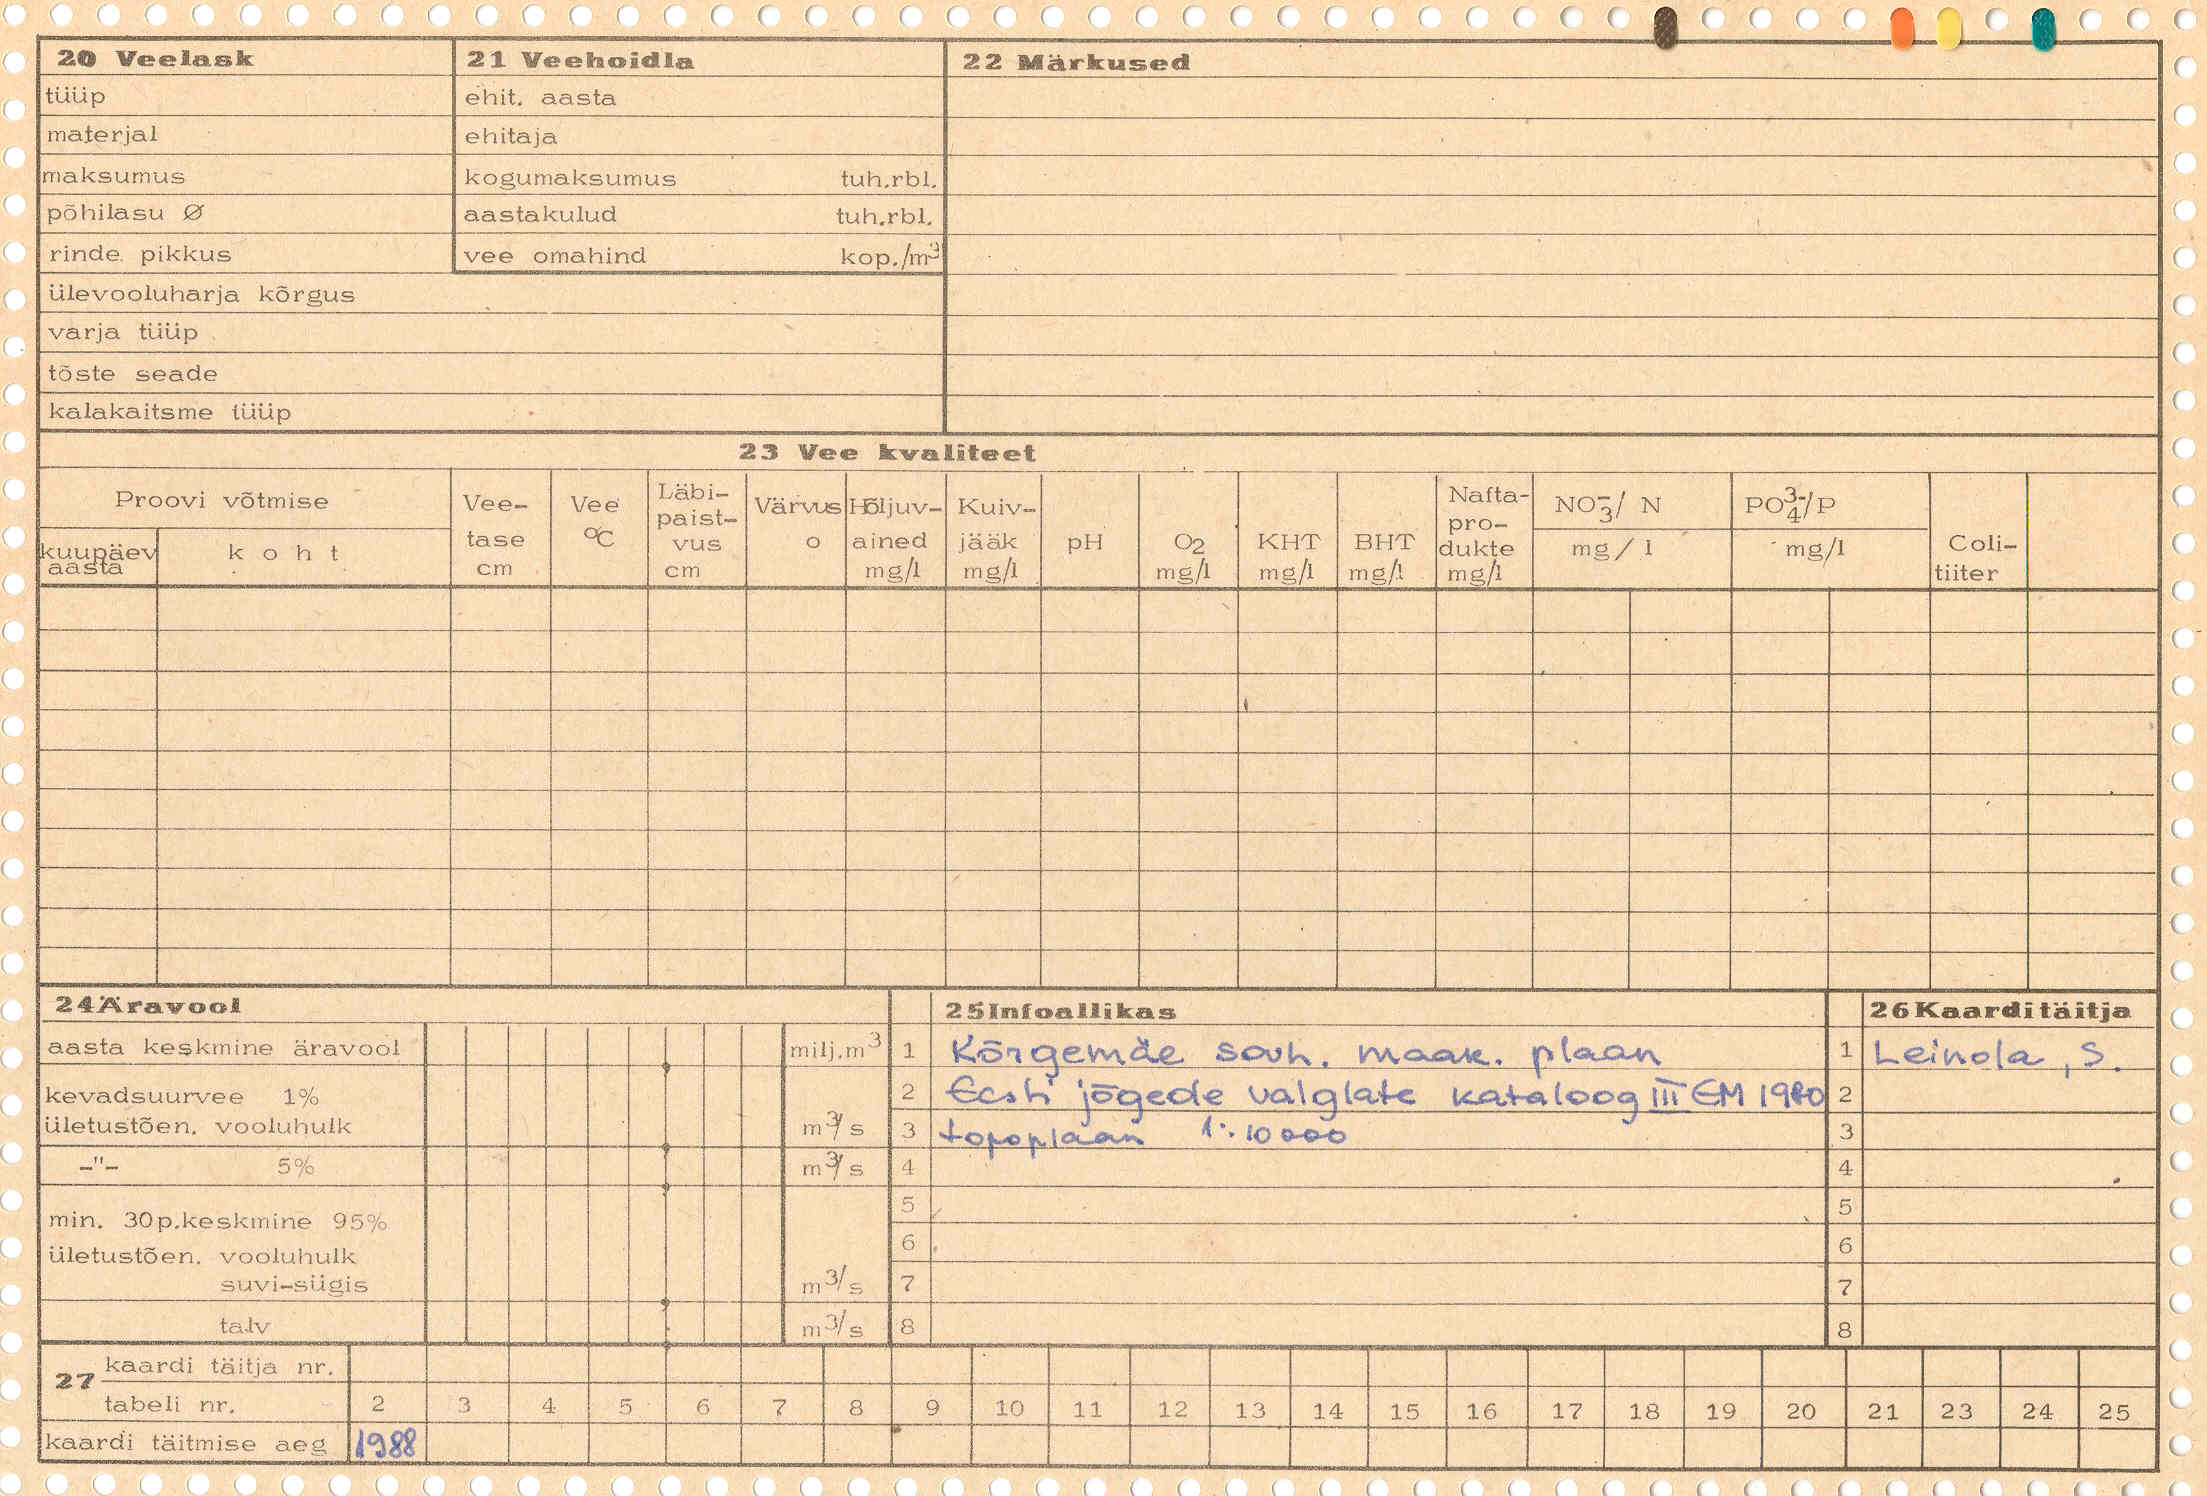 20 Veelask
tüüp
materjal
maksumus
põhilasu Ø
rinde pikkus
ülevooluharja kõrgus
varja tüüp
tõste seade
kalakaitsme tüüp
21 Veehoidla
ehit. aasta
ehitaja
kogumaksumus tuh.rbl.
aastakulud tuh.rbl.
vee omahind kop./m³
22 Märkused
23 Vee kvaliteet
Proovi võtmise
kuupäev aasta
koht
Vee-
tase
cm
Vee
°C
Läbi-
paist-
vus
cm
Värvus
o
Hõljuv-
ained
mg/l
Kuiv-
jääk
mg/l
pH
O₂
mg/l
KHT
mg/l
BHT
mg/l
Nafta-
pro-
dukte
mg/l
NO₃⁻/ N
mg/l
PO₄³⁻/P
mg/l
Coli-
tiiter
24 Äravool
aasta keskmine äravool milj.m³
kevadsuurvee 1%
ületustõen. vooluhulk m³/s
-"- 5% m³/s
min. 30p.keskmine 95%
ületustõen. vooluhulk
suvi-sügis m³/s
talv m³/s
25 Infoallikas
1 Kõrgemäe sovh. maak. plaan
2 Eesti jõgede valglate kataloog III EM 1980
3 topoplaan 1:10000
4
5
6
7
8
26 Kaarditäitja
1 Leinola, S.
2
3
4
5
6
7
8
27 kaardi täitja nr.
tabeli nr. 2 3 4 5 6 7 8 9 10 11 12 13 14 15 16 17 18 19 20 21 23 24 25
kaardi täitmise aeg 1988